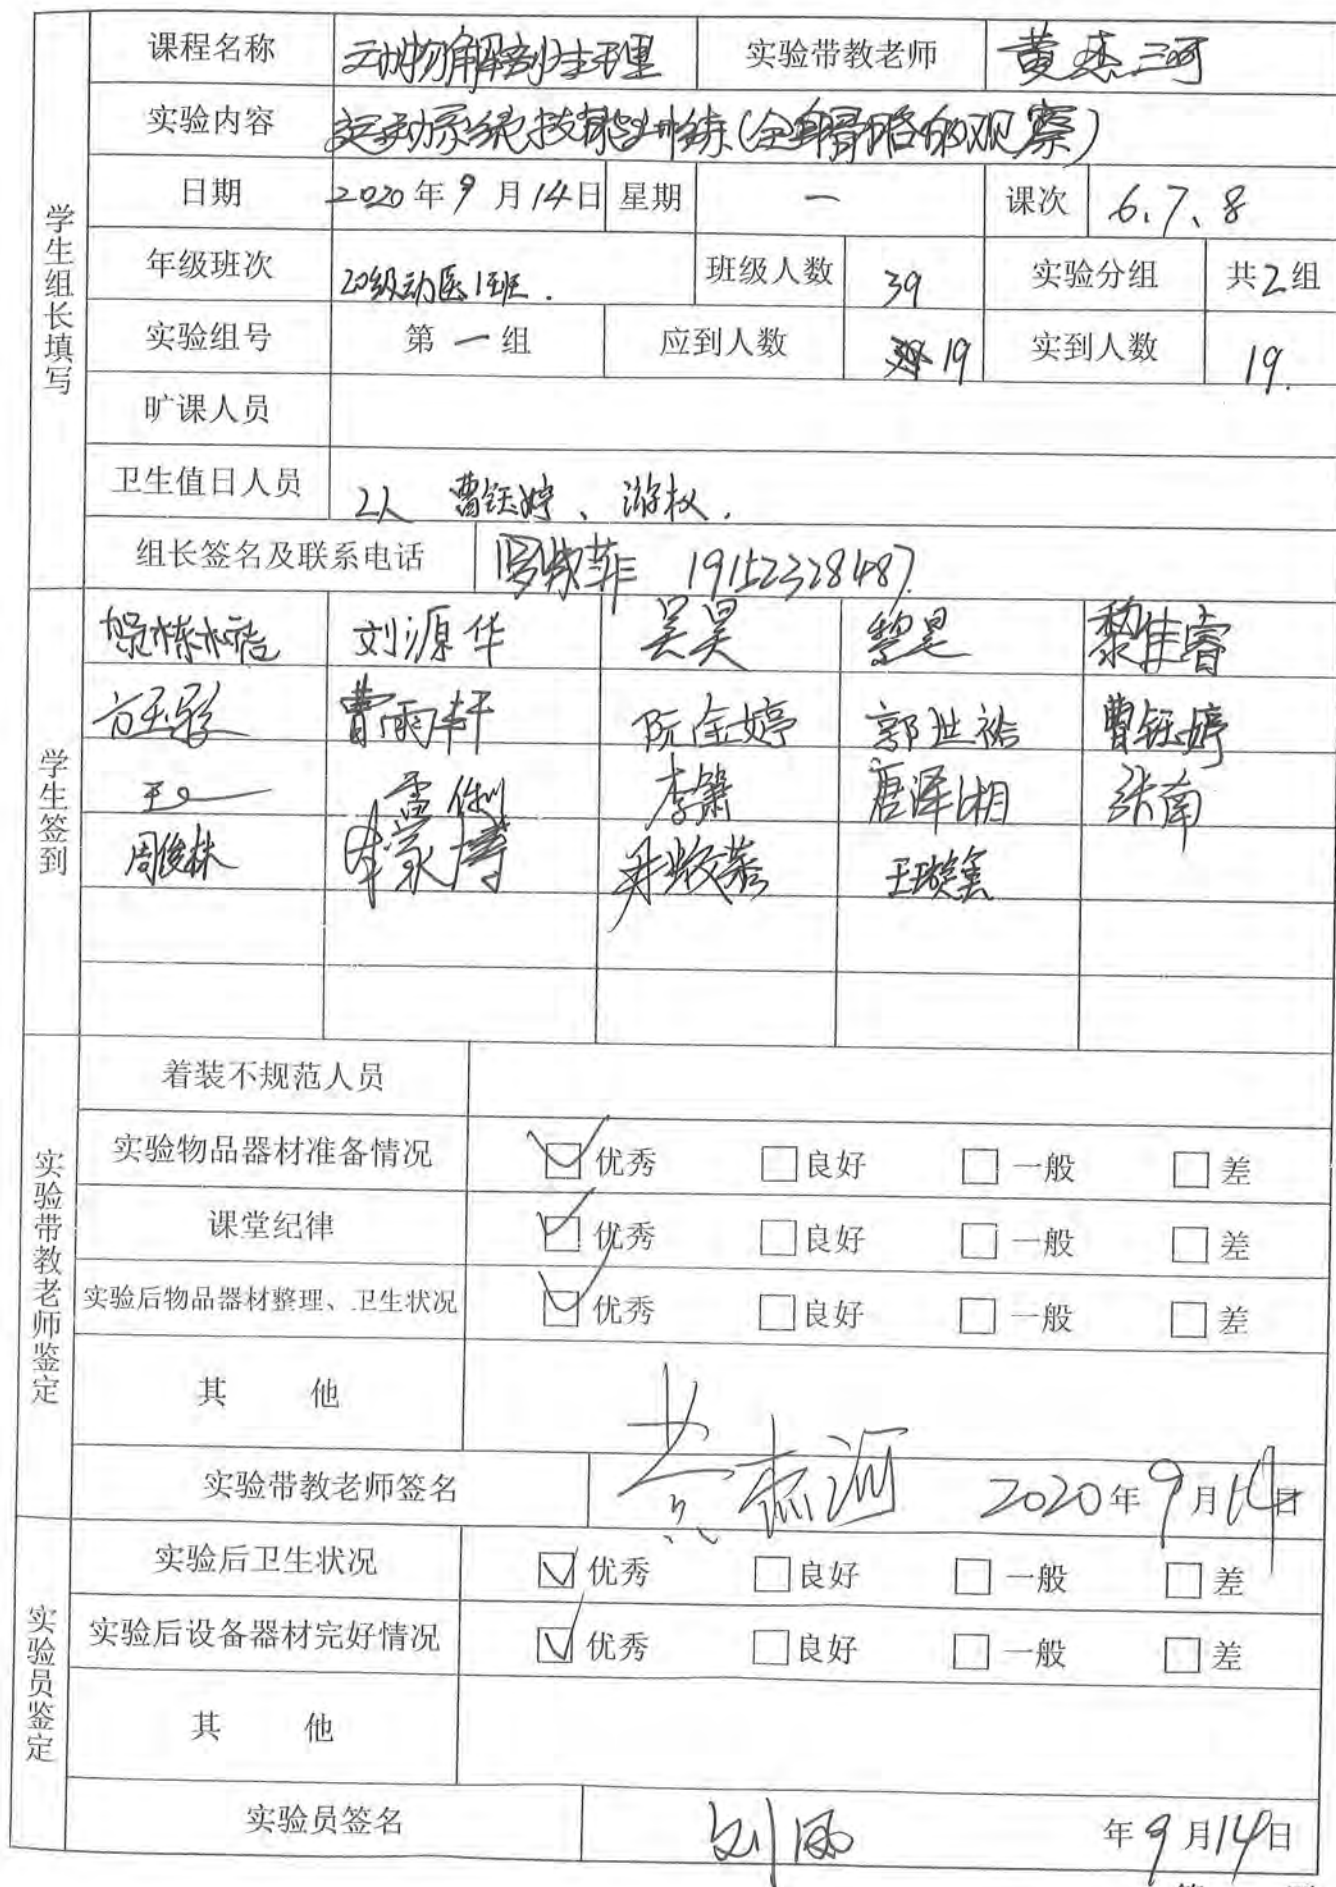 课程名称 动物解剖生理 实验带教老师 黄杰河
实验内容 运动系统技能训练(全身骨骼的观察)
日期 2020年9月14日 星期 一 课次 6、7、8
年级班次 20级动医1班. 班级人数 39 实验分组 共2组
实验组号 第一组 应到人数 19 实到人数 19.
旷课人员
卫生值日人员 2人 曹钰婷、游权.
组长签名及联系电话 19152328487.
学生组长填写
刘源华 吴昊 黎昱 黎佳睿
曹雨轩 阮金婷 郭世裕 曹钰婷
李箫 唐泽湘 张南
周俊林
学生签到
着装不规范人员
实验物品器材准备情况 优秀 良好 一般 差
课堂纪律 优秀 良好 一般 差
实验后物品器材整理、卫生状况 优秀 良好 一般 差
其 他
实验带教老师签名 2020年9月14日
实验带教老师鉴定
实验后卫生状况 优秀 良好 一般 差
实验后设备器材完好情况 优秀 良好 一般 差
其 他
实验员签名 年9月14日
实验员鉴定